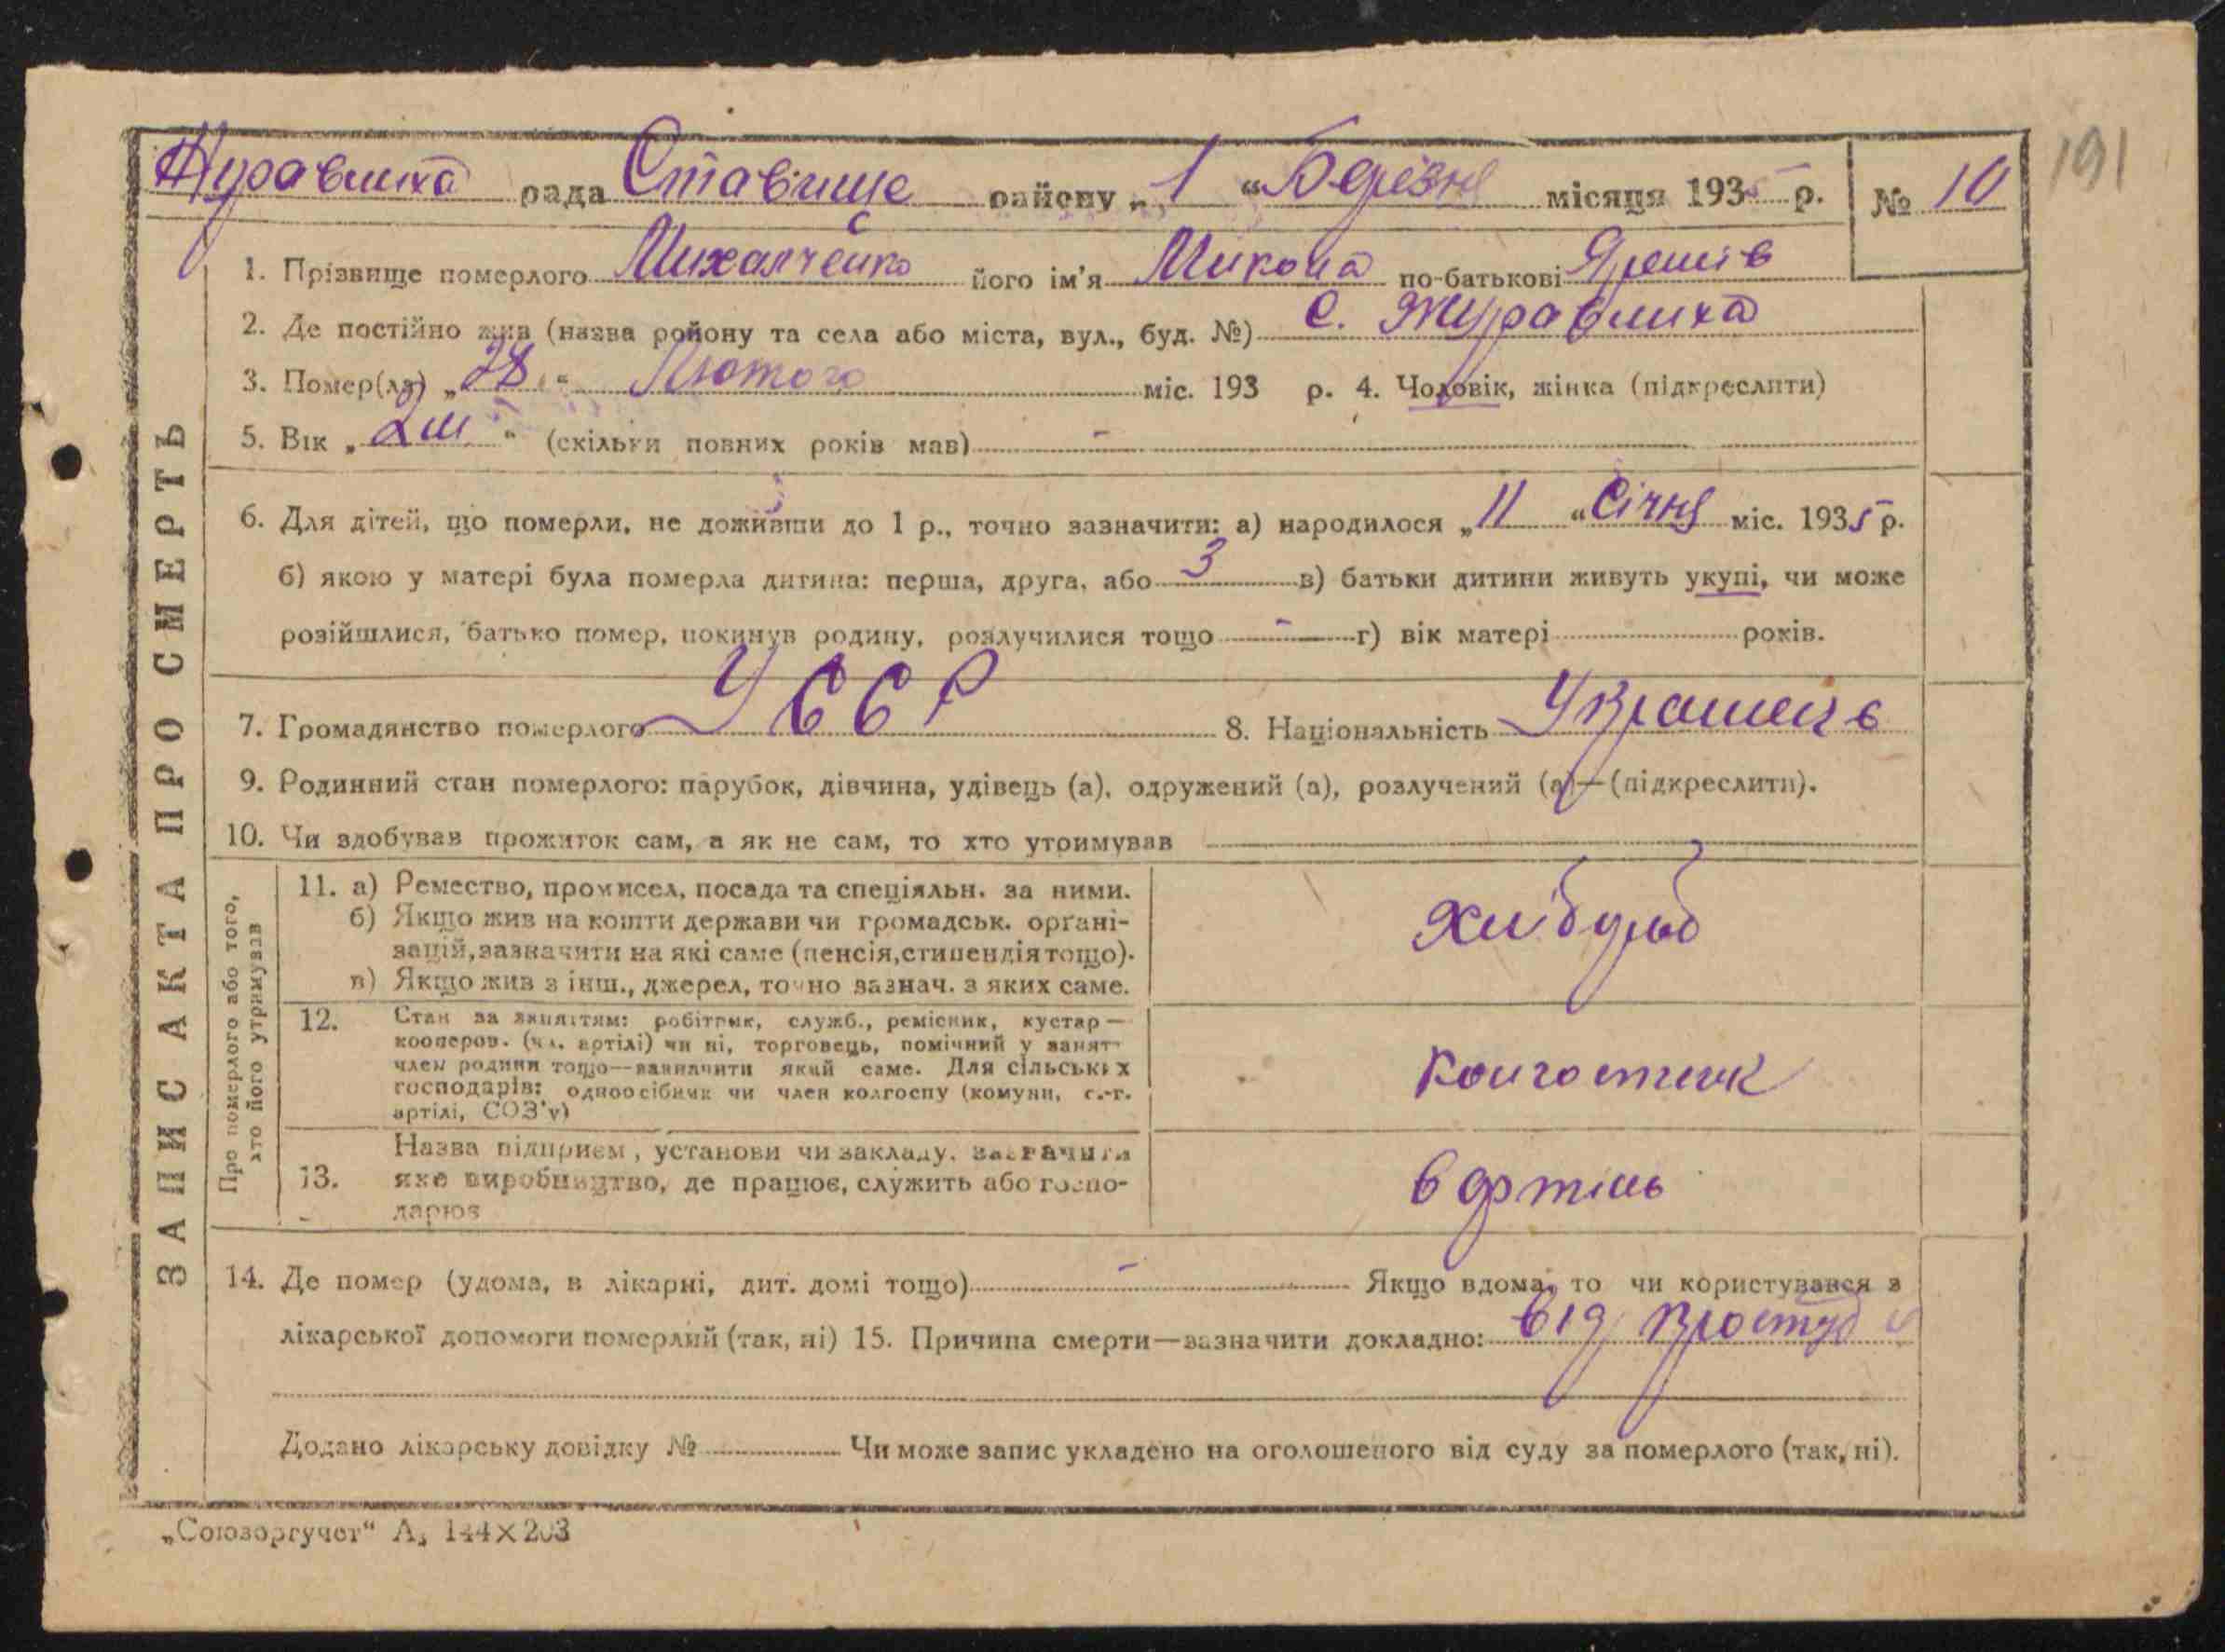 Журавлиха рада Ставище району „1“ Березня місяця 1935 р. № 10
191
1. Прізвище померлого Михалченко його ім'я Микола по-батькові
2. Де постійно жив (назва ройону та села або міста, вул., буд. №) с. Журавлиха
3. Помер(ла) „28“ Лютого міс. 193 р. 4. Чоловік, жінка (підкреслити)
5. Вік „2 м“ (скільки повних років мав) -
6. Для дітей, що померли, не доживши до 1 р., точно зазначити: а) народилося „11“ Січня міс. 1935 р.
б) якою у матері була померла дитина: перша, друга, або 3 в) батьки дитини живуть укупі, чи може
розійшлися, батько помер, покинув родину, розлучилися тощо - г) вік матері років.
7. Громадянство померлого УССР 8. Національність Українець
9. Родинний стан померлого: парубок, дівчина, удівець (а), одружений (а), розлучений (а)—(підкреслити).
10. Чи здобував прожиток сам, а як не сам, то хто утримував
ЗАПИС АКТА ПРО СМЕРТЬ
Про померлого або того,
хто його утримував
11. а) Ремество, промисел, посада та спеціяльн. за ними.
б) Якщо жив на кошти держави чи громадськ. орґані-
зацій, зазначити на які саме (пенсія, стипендія тощо).
в) Якщо жив з інш., джерел, точно зазнач. з яких саме.
хлібороб
12. Стан за заняттям: робітник, служб., ремісник, кустар—
кооперов. (чл. артілі) чи ні, торговець, помічний у занят.
член родини тощо—зазначити який саме. Для сільських
господарів: одноосібник чи член колгоспу (комуни, с.-г.
артілі, СОЗ'у)
колгоспник
13. Назва підприєм, установи чи закладу, зазначити
яке виробництво, де працює, служить або госпо-
дарює
в артіль
14. Де помер (удома, в лікарні, дит. домі тощо) - Якщо вдома, то чи користувався з
лікарської допомоги померлий (так, ні) 15. Причина смерти—зазначити докладно: від простуди
Додано лікарську довідку № Чи може запис укладено на оголошеного від суду за померлого (так, ні).
„Союзоргучет“ А₅ 144×203